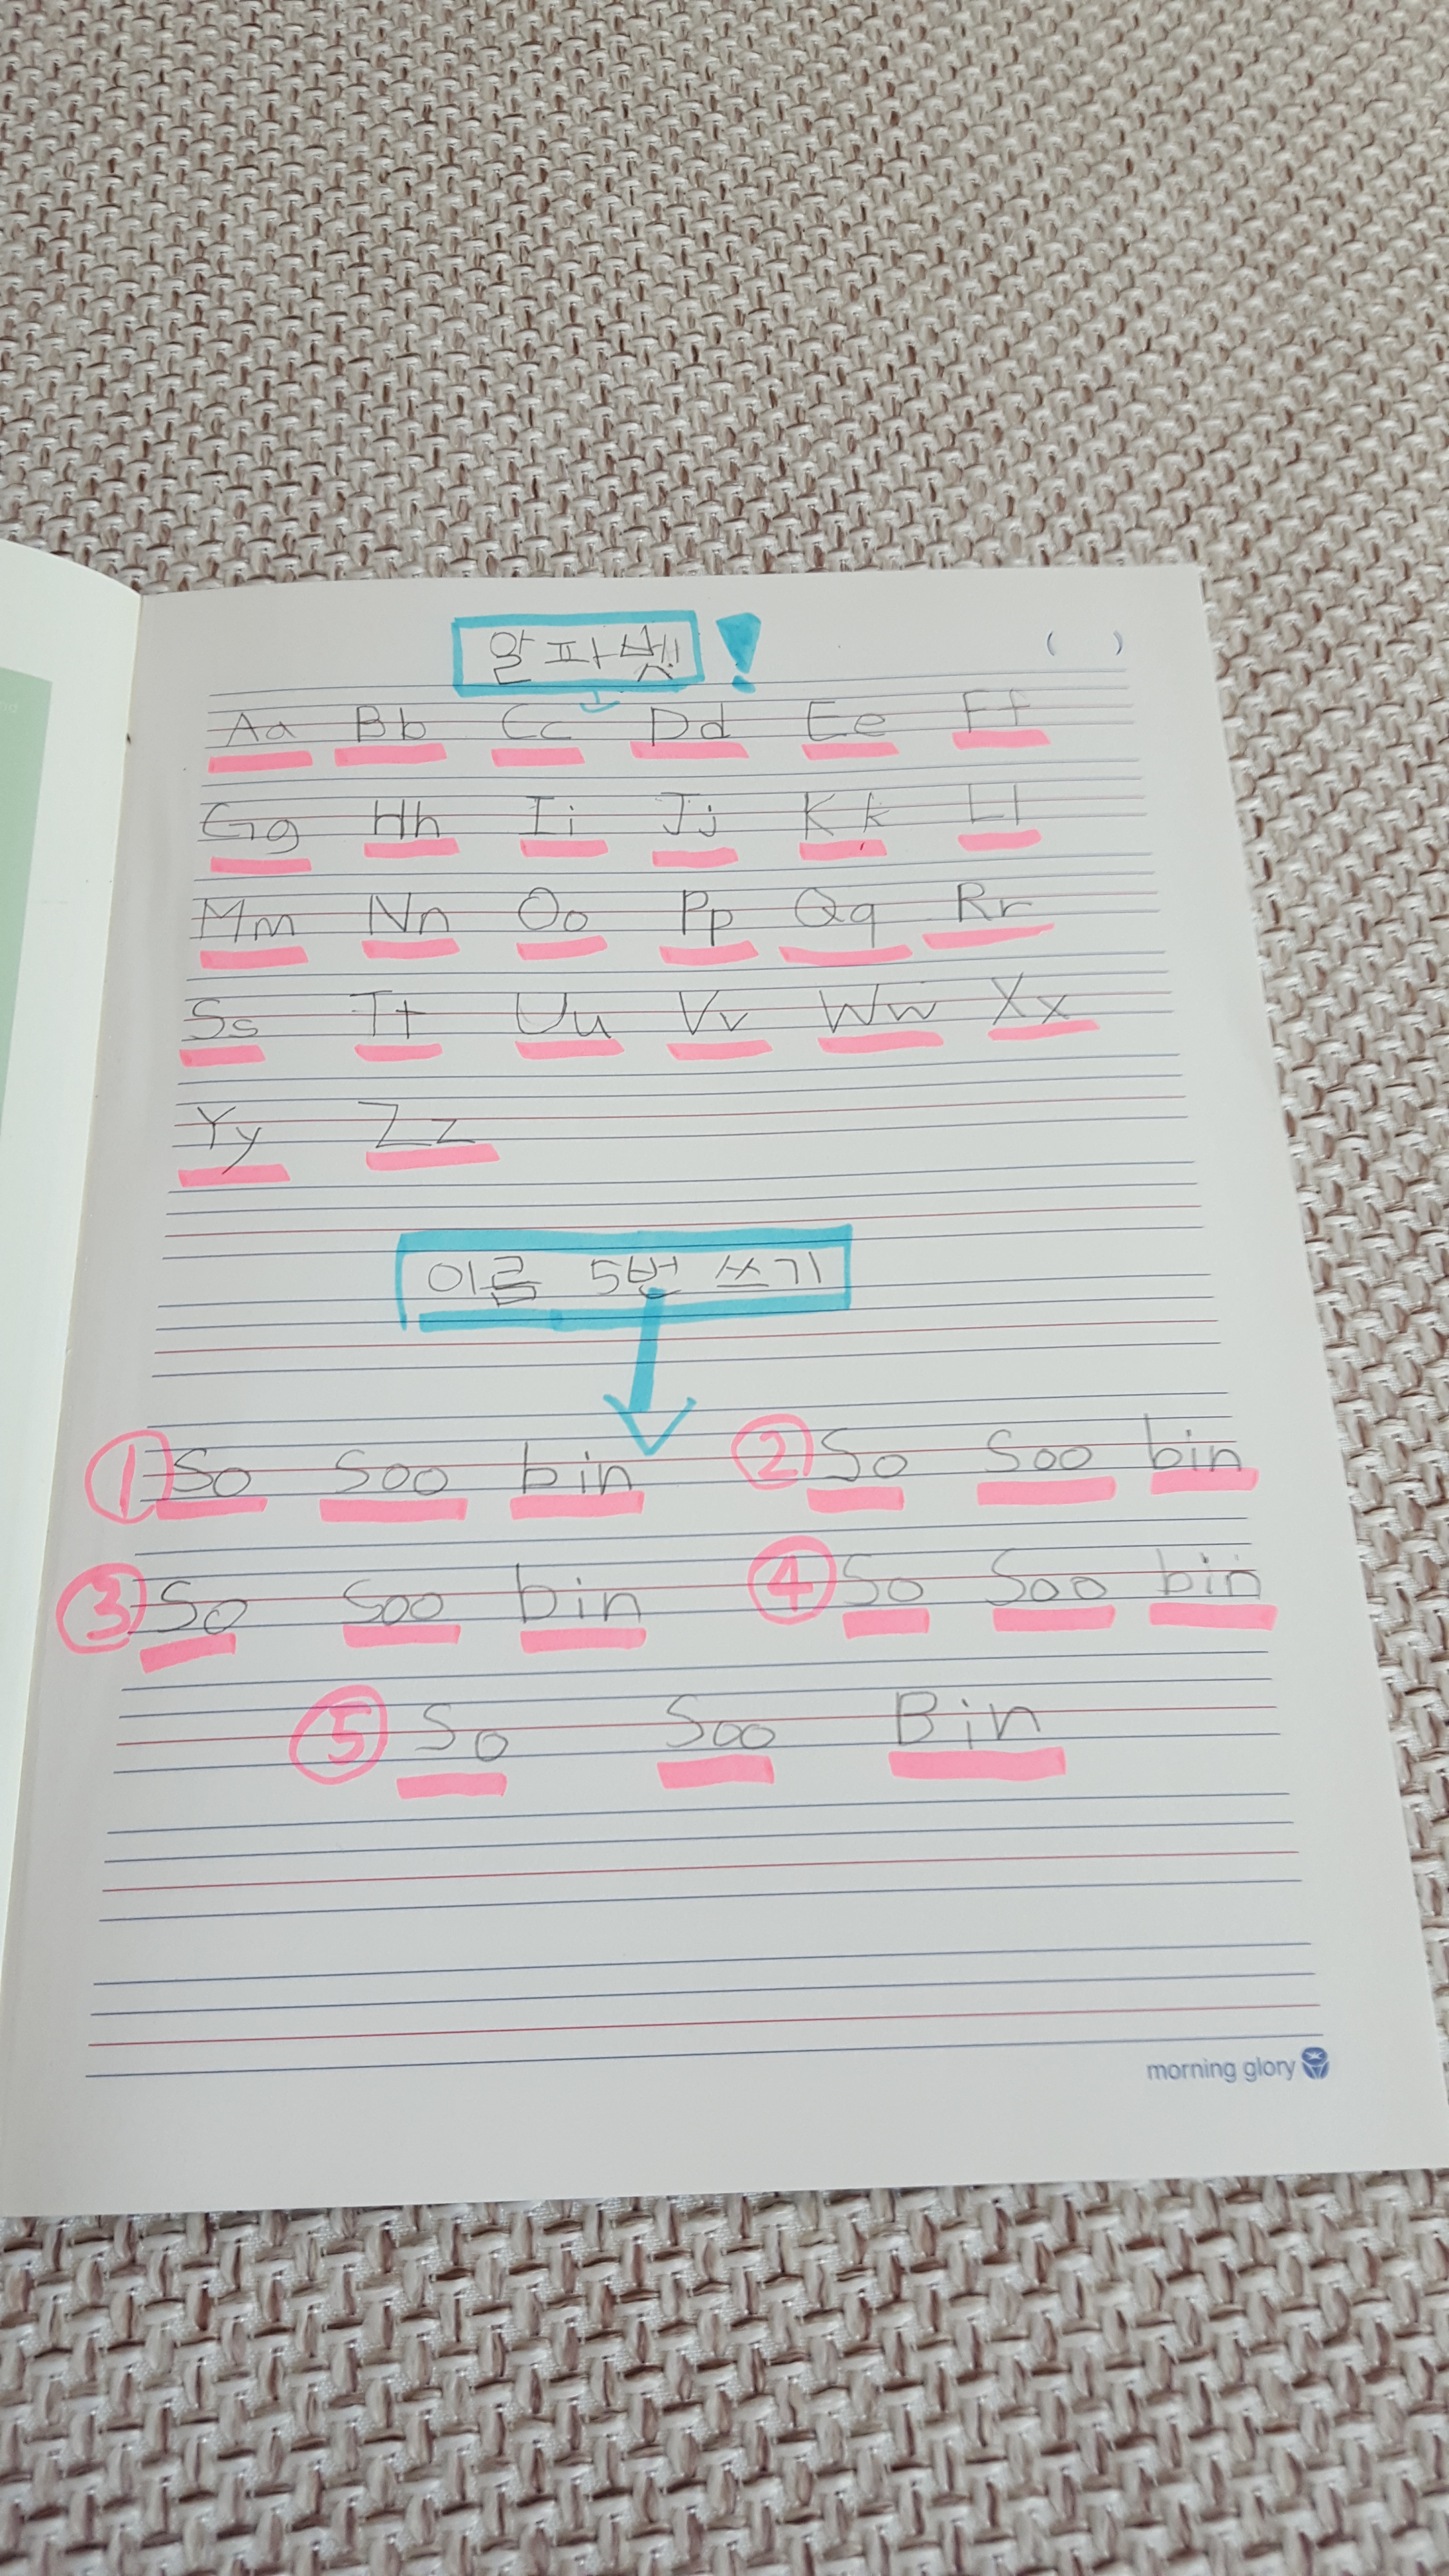 알파벳!
( )
Aa Bb Cc Dd Ee Ff
Gg Hh Ii Jj Kk Ll
Mm Nn Oo Pp Qq Rr
Ss Tt Uu Vv Ww Xx
Yy Zz
이름 5번 쓰기
① So Soo bin ② So Soo bin
③ So Soo bin ④ So Soo bin
⑤ So Soo Bin
morning glory